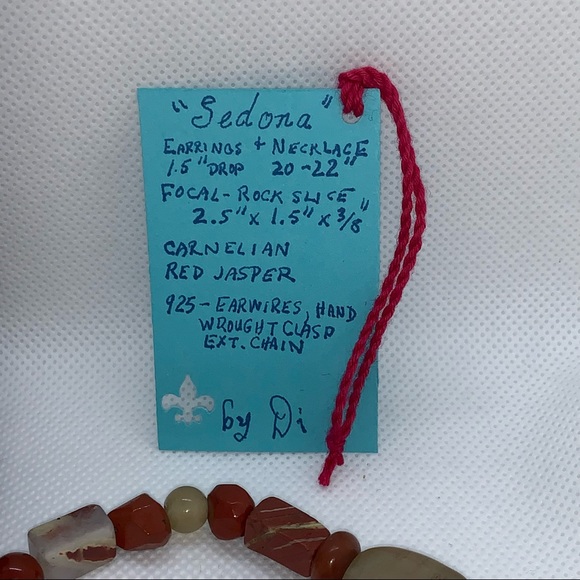 "Sedona"
EARRINGS + NECKLACE
1.5" DROP 20-22"
FOCAL-ROCK SLICE
2.5" x 1.5" x 3/8"
CARNELIAN
RED JASPER
925- EARWIRES, HAND
WROUGHT CLASP
EXT. CHAIN
by Di